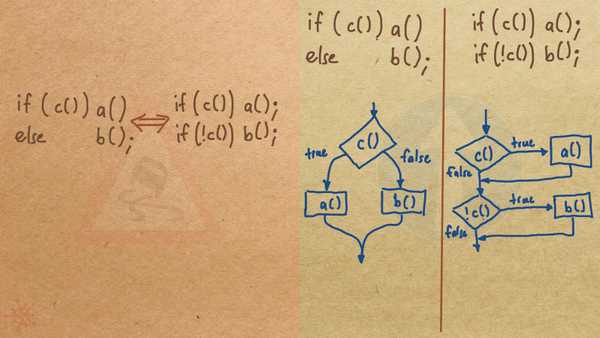 if (c()) a() ⟺ if (c()) a();
else b(); if (!c()) b();
if (c()) a()
else b();
c()
true false
a() b()
if (c()) a();
if (!c()) b();
c() true a()
false
!c() true b()
false